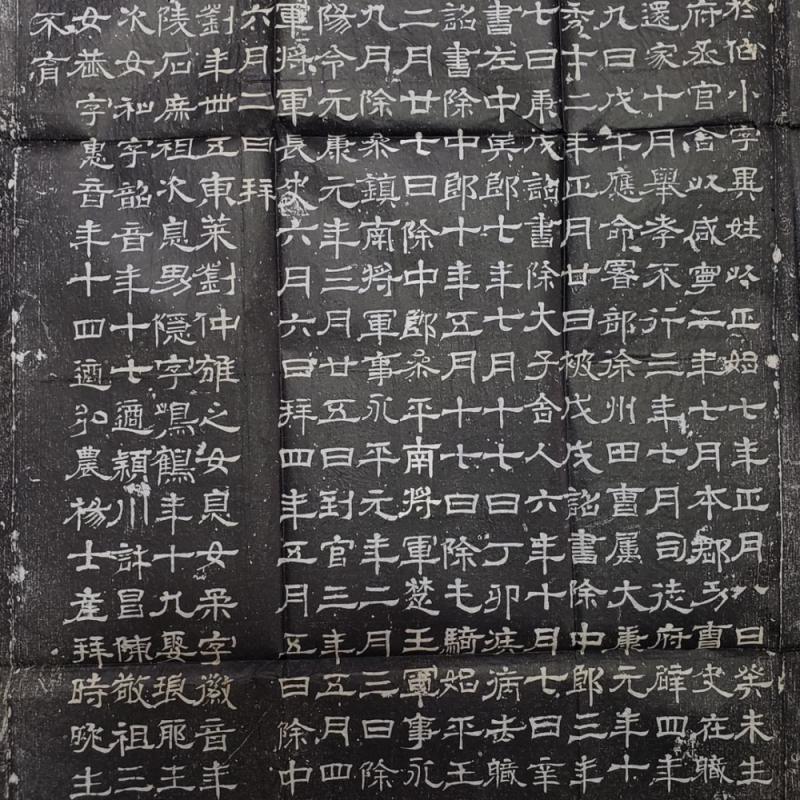 於伯小字異姓以正始七年正月八日癸未生
府丞官舍以咸寧二年七月本郡功曹史在職
還家十月舉孝不行三年七月司徒府辟四年
九日戊午應命署部徐州田曹屬大康元年十
秀十二年正月廿日被戊戌詔書除中郎三年
七日庚戌詔書除大子舍人六年十月七日辛
書左中兵郎七年七月十七日丁卯疾病去職
詔書除中郎十年五月十七日除屯騎始平王
二月廿七日除中郎參平南將軍楚王軍事永
九月除參鎮南將軍事永平元年二月三日除
陽令元康元年三月廿五日到官三年五月四
軍將軍長史六月六日拜四年五月五日除中
六月二日拜
劉年卅五東萊劉仲雄之女息女柔字徽音年
陵石庶祖次息男隱字鳴鶴年十九娶琅耶王
次女和字韶音年十七適潁川許昌陳敬祖三
女恭字惠音年十四適弘農楊士產拜時晚生
不育